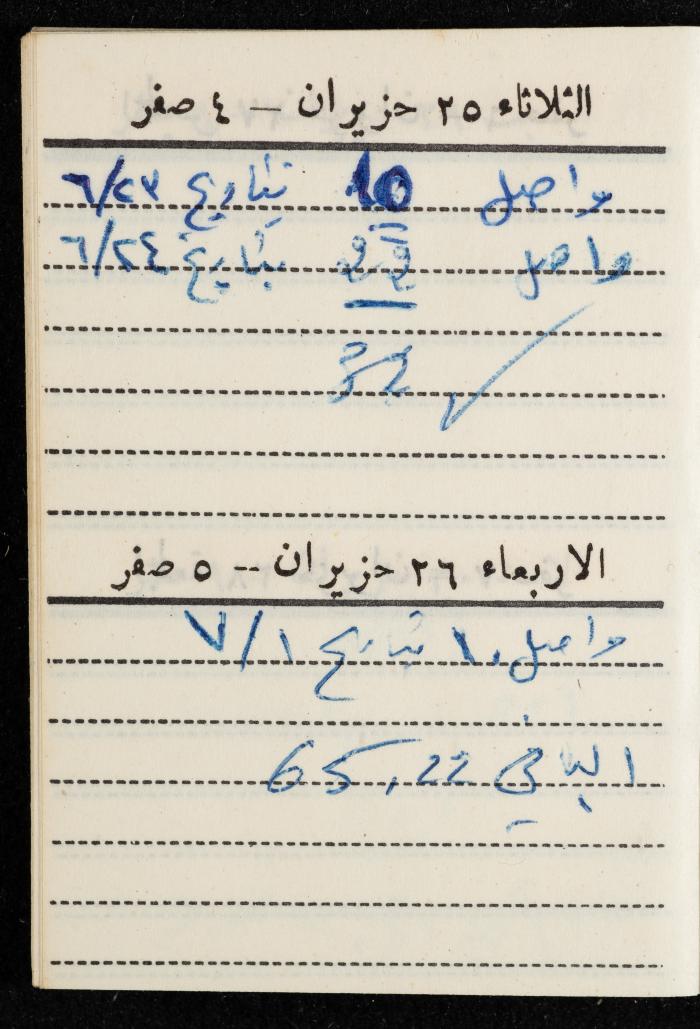 الثلاثاء ٢٥ حزيران — ٤ صفر
واصل 10 بتاريخ ٦/٢٣
واصل 22 بتاريخ ٦/٢٤
32
الاربعاء ٢٦ حزيران -- ٥ صفر
واصل ١٠ بتاريخ ٧/١
الباقي 65,22